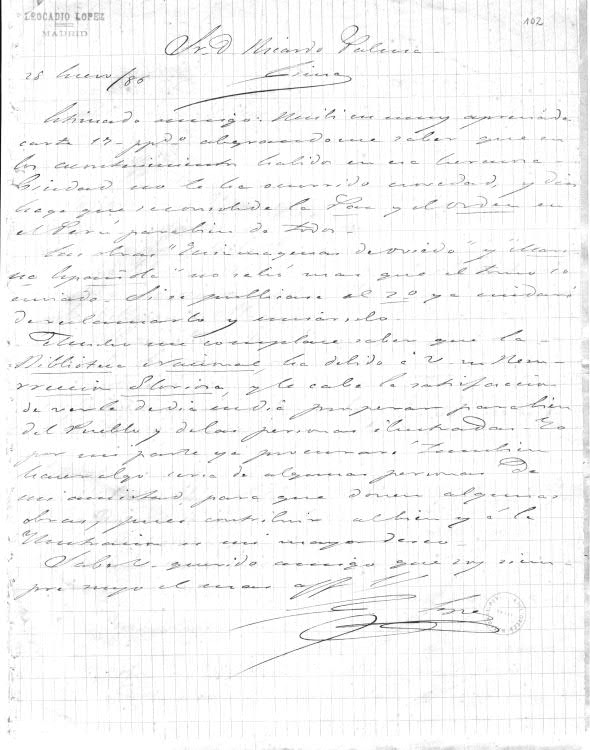 LEOCADIO LOPEZ
MADRID
102
Sr. D Ricardo Palma
Lima
25 Enero/86
Estimado amigo: Recibí su muy apreciada
carta 17 ppdo alegrandome saber que en
los acontecimientos habido en esa hermosa
Ciudad no le ha ocurrido novedad, y Dios
haga que se consolide la Paz y el orden en
el Perú para bien de todos.
Las obras "Quincuagenas de Oviedo" y "
no Española" no salió mas que el tomo 1o
enviado. Si se publicase el 2o ya cuidaré
de reclamarlo y enviarselo.
Mucho me complace saber que la
Biblioteca Nacional, ha debido á V. su Resu-
rrección Gloriosa, y le cabe la satisfacción
de verla de dia en dia prosperar para bien
del Pueblo y de las personas ilustradas. Yo
por mi parte ya procuraré tambien
hacer algo cerca de algunas personas de
mi amistad para que donen algunas
obras, pues contribuir al bien y á la
Ilustración es mi mayor deseo.
Sabe V. querido amigo que soy siem-
pre suyo el mas aff